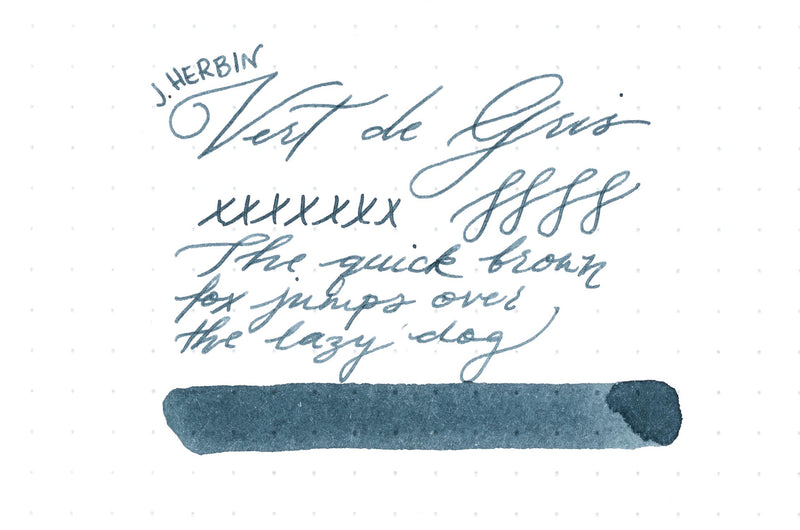 J. HERBIN
Vert de Gris
xxxxxxx ffff
The quick brown
fox jumps over
the lazy dog